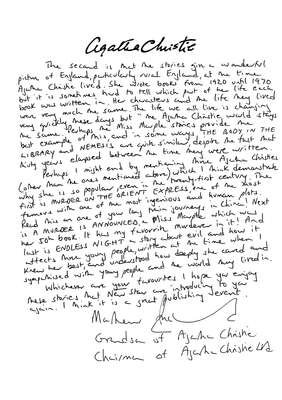 Agatha Christie
The second is that the stories give a wonderful
picture of England, particularly rural England, at the time
Agatha Christie lived. She wrote books from 1920 until 1970
but it is sometimes hard to tell which part of her life each
book was written in. Her characters and the life they lived
were very much the same. The life we all live is changing
very quickly these days but the Agatha Christie world stays
the same. Perhaps the Miss Marple stories provide the
best example of this, and in some ways THE BODY IN THE
LIBRARY and NEMESIS are quite similar, despite the fact that
thirty years elapsed between the time they were written.
Perhaps I might end by mentioning three Agatha Christies
(other than the ones mentioned above) which I think demonstrate
why she is so popular, even in the twenty-first century. The
first is MURDER ON THE ORIENT EXPRESS, one of the most
famous with one of the most ingenious and human plots.
Read this on one of your long train journeys in China! Next
is A MURDER IS ANNOUNCED, a Miss Marple which was
her 50th book. It has my favourite murderer in it! And
last is ENDLESS NIGHT a story about evil and how it
affects three young people, written at the time when I
knew her best, and understood how deeply she cared and
sympathised with young people and the world they lived in.
Whichever are your favourites I hope you enjoy
these stories that New Star are introducing to you
again. I think it is a great publishing event.
Mathew
Grandson of Agatha Christie
Chairman of Agatha Christie Ltd